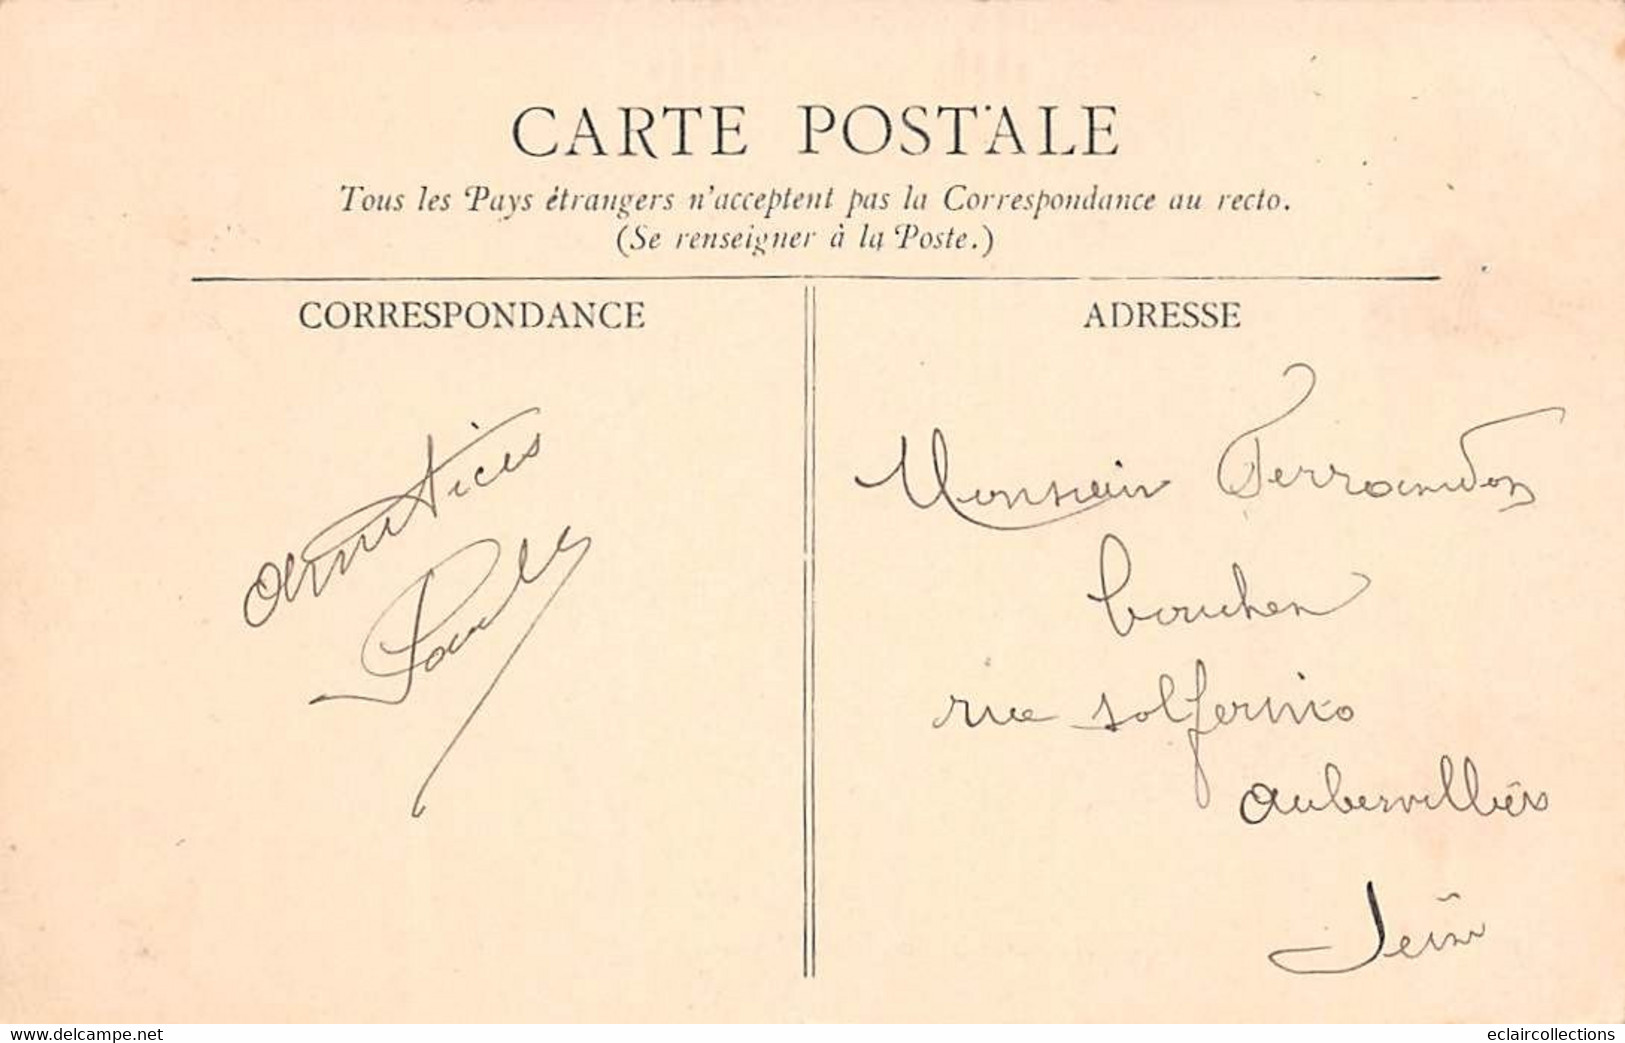 CARTE POSTALE
Tous les Pays étrangers n'acceptent pas la Correspondance au recto.
(Se renseigner à la Poste.)
CORRESPONDANCE
ADRESSE
amitiés
Monsieur Ferrandon
boucher
rue solferino
aubervilliers
Seine
www.delcampe.net
eclaircollections